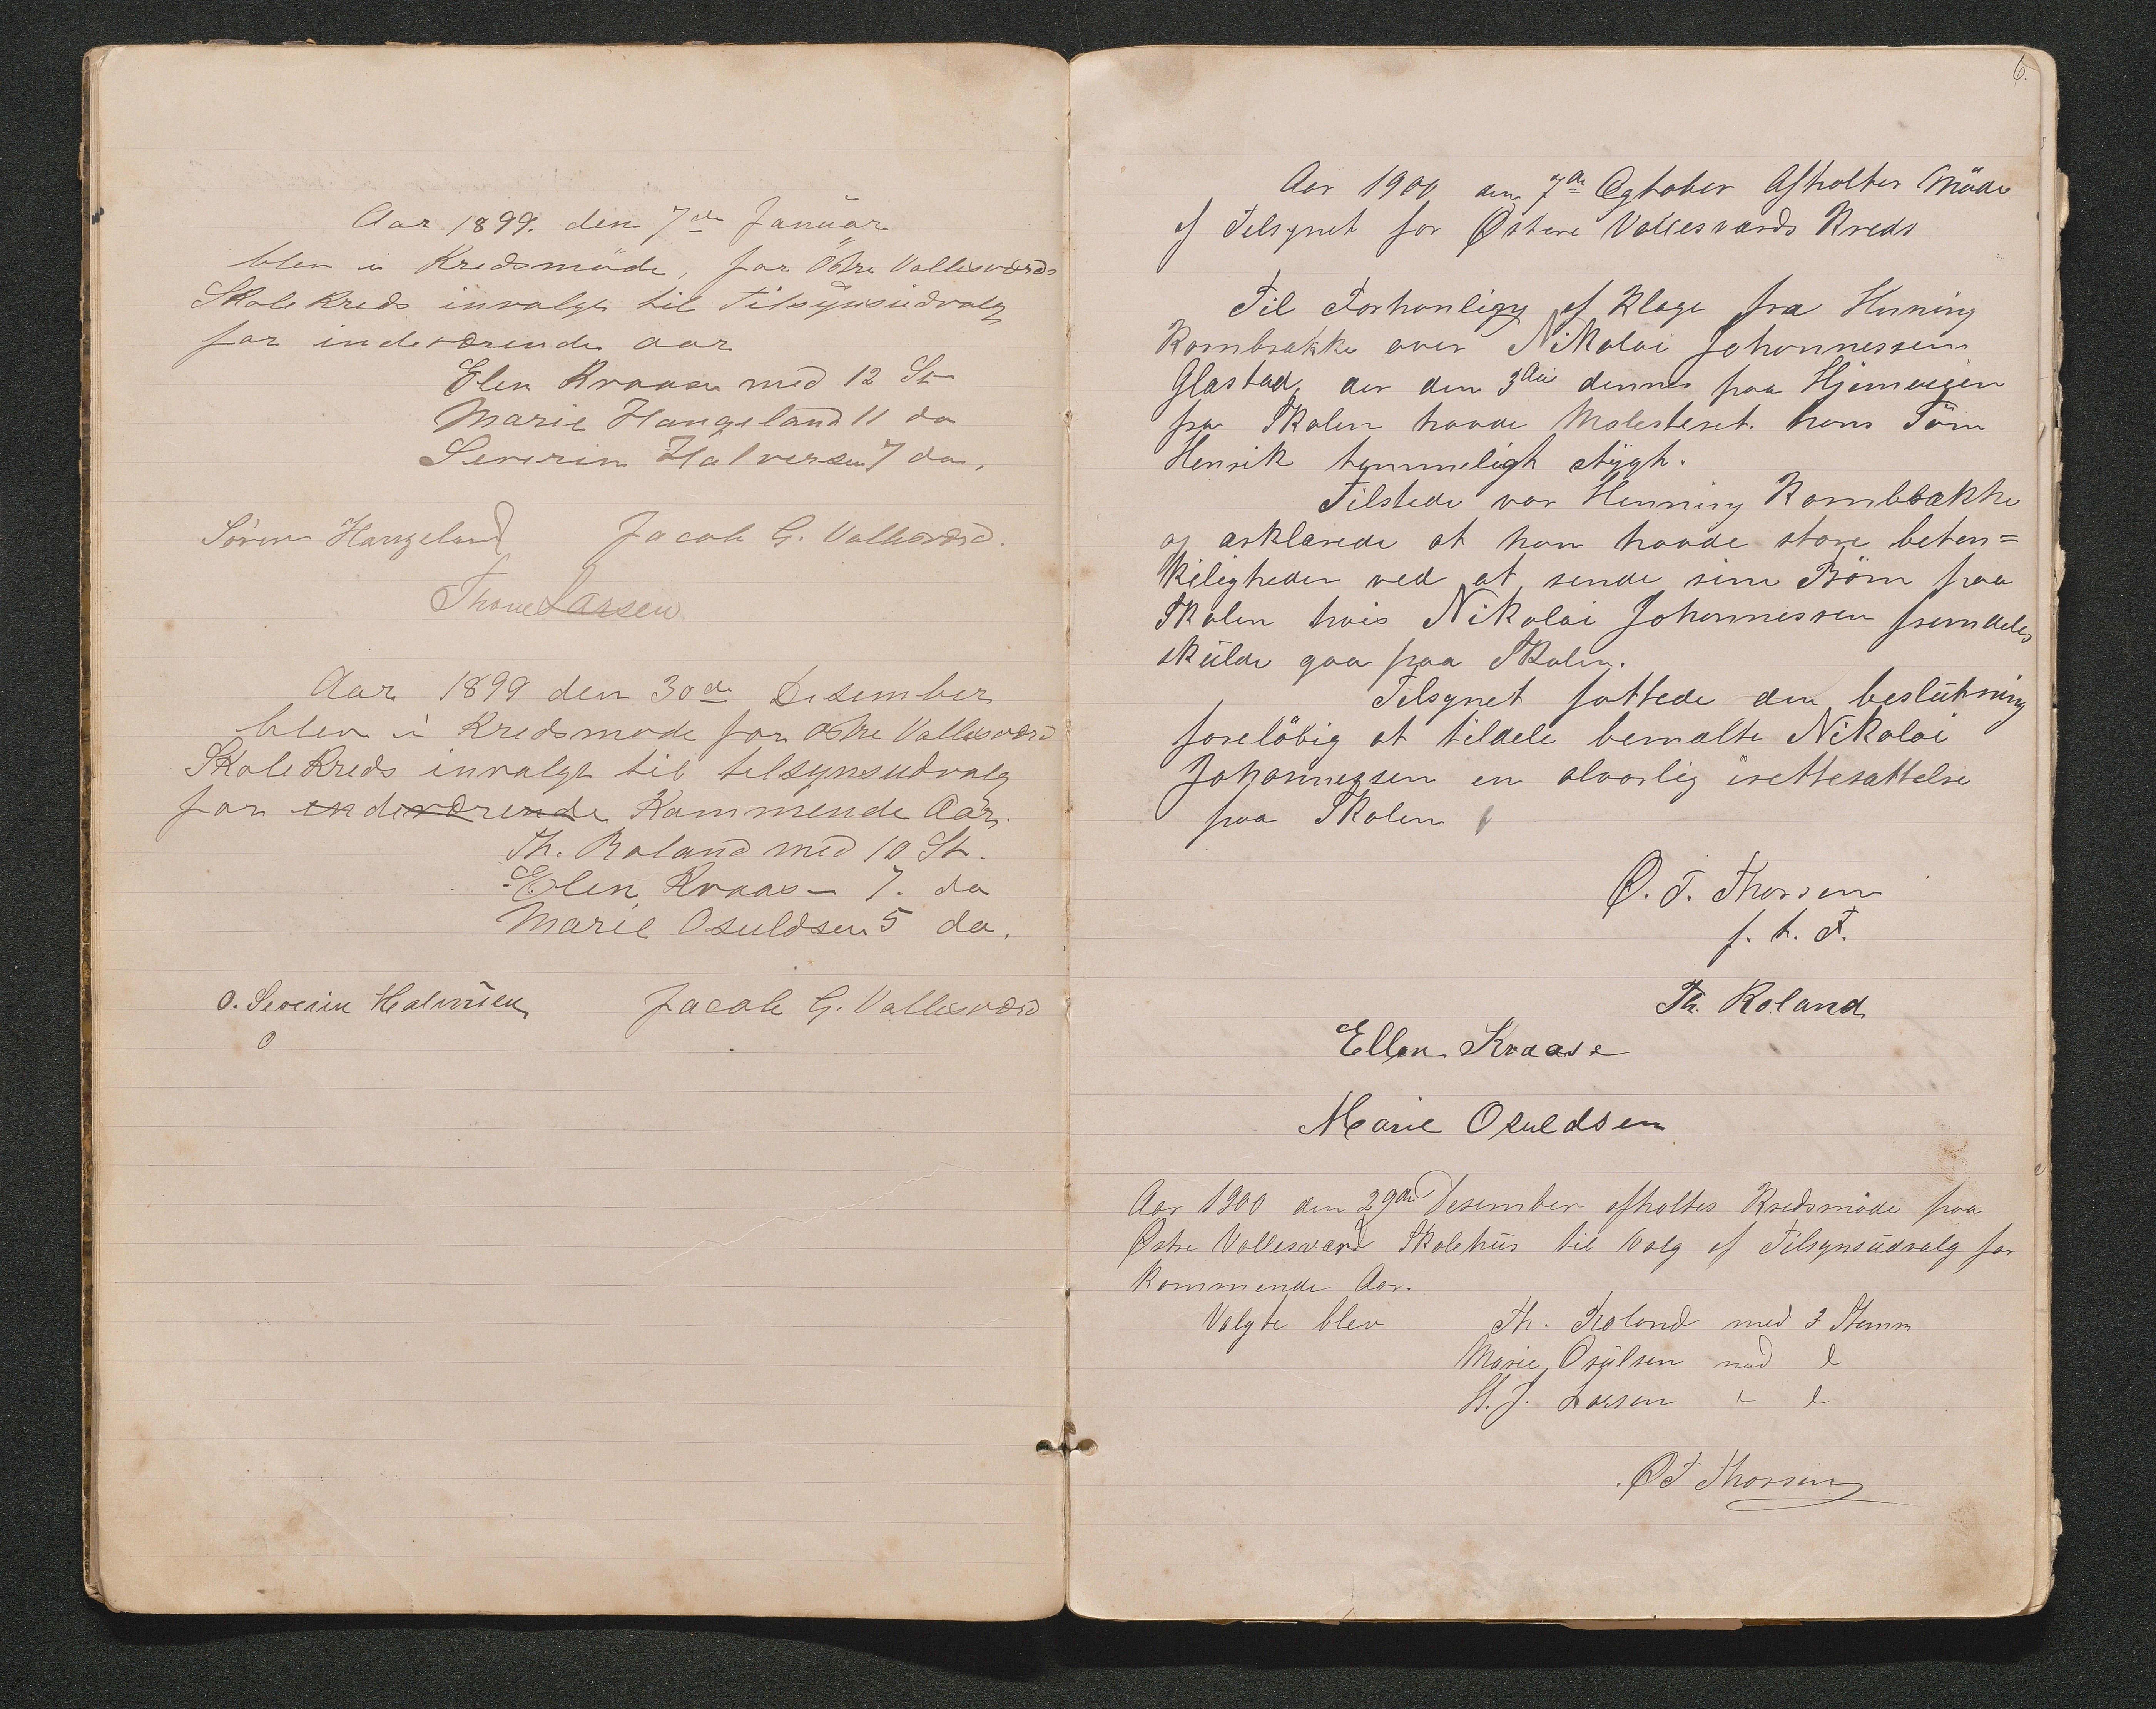 Aar 1899. den 7de Januar
blev i Kredsmöde, for Östre Vallesværds
Skolekreds invalgt til Tilsynsudvalg
for indeværende aar
Elen Kraase med 12 St
Marie Haugeland 11 do
Severin Halversen 7 do.
Sören Haugeland Jacob G. Vallesværd.
Larsen
Aar 1899 den 30de Desember
blev i Kredsmøde for Østre Vallesværd
Skolekreds invalgt til telsynsudvalg
for indeværende Kommende Aar.
Th. Roland med 10 St.
Elen Kraas - 7. do
Marie Osuldsen 5 do.
O. Severin Halvorsen Jacob G. Vallesværd
6.
Aar 1900 den 7de Ogtober Afholtes Möde
af Telsynet for Østere Vallesværds Kreds
Til Forhanligg af Klage fra Henning
Kornbrække over Nikolai Johannessen
Glastad, der den 3die dennes paa Hjemveien
fra Skolen havde Molesteret hans Sön
Henrik temmeligt stygt.
Tilstede var Henning Kornbrække
og erklærede at han havde store beten=
keligheder ved at sende sine Börn paa
Skolen hvis Nikolai Johannessen fremdeles
skulde gaa paa Skolen.
Telsynet fattede den beslutning
foreløbig at tildele bemælte Nikolai
Johannessen en alvorlig irettesættelse
paa Skolen
O. T. Thorsen
f. t. F.
Th. Roland
Ellen Kraase
Marie Osuldsen
Aar 1900 den 29de Desember afholtes Kredsmöde paa
Østre Vallesværd Skolehus til Valg af Tilsynsudvalg for
Kommende Aar.
Valgte blev Th. Roland med 3 Stemm
Marie Osulsen med l
H. J. Larsen " l
O T Thorsen